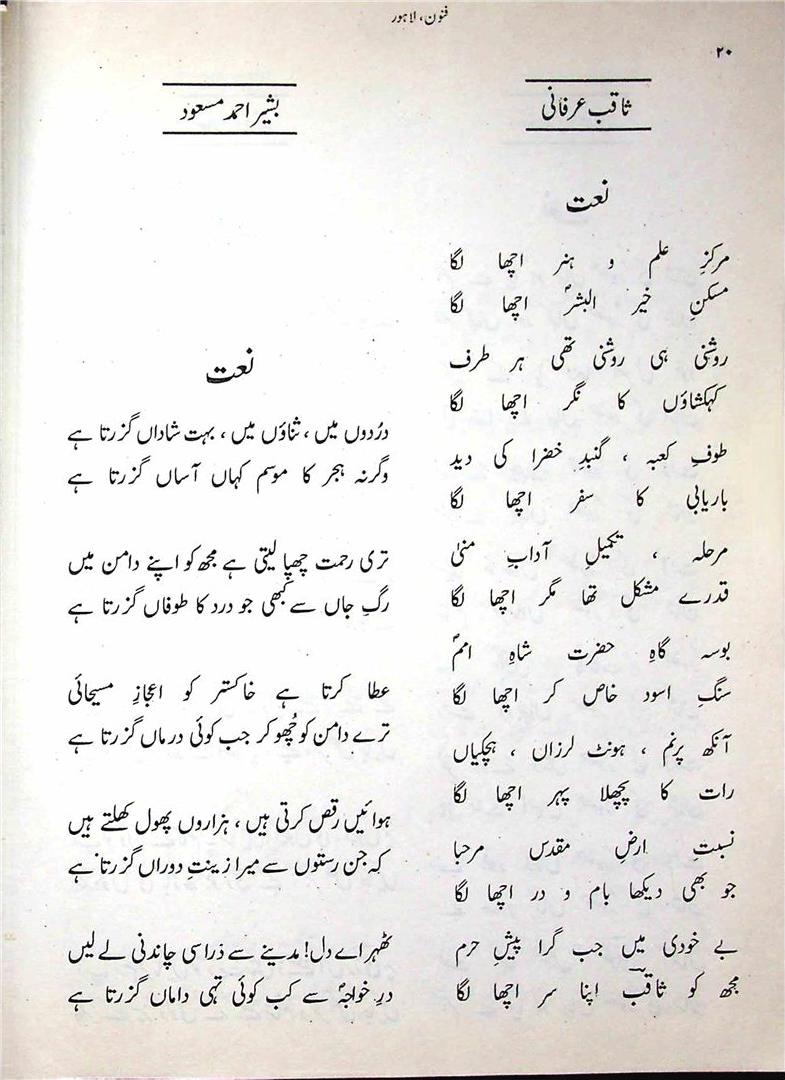 فنون، لاہور
۲۰
ثاقب عرفانی
نعت
مرکزِ علم و ہنر اچھا لگا
مسکنِ خیر البشرؐ اچھا لگا
روشنی ہی روشنی تھی ہر طرف
کہکشاؤں کا نگر اچھا لگا
طوفِ کعبہ ، گنبدِ خضرا کی دید
باریابی کا سفر اچھا لگا
مرحلہ ، تکمیلِ آدابِ منیٰ
قدرے مشکل تھا مگر اچھا لگا
بوسہ گاہِ حضرت شاہِ اممؐ
سنگِ اسود خاص کر اچھا لگا
آنکھ پرنم ، ہونٹ لرزاں ، ہچکیاں
رات کا پچھلا پہر اچھا لگا
نسبتِ ارضِ مقدس مرحبا
جو بھی دیکھا بام و در اچھا لگا
بے خودی میں جب گرا پیشِ حرم
مجھ کو ثاقبؔ اپنا سر اچھا لگا
بشیر احمد مسعود
نعت
درُدوں میں ، ثناؤں میں ، بہت شاداں گزرتا ہے
وگرنہ ہجر کا موسم کہاں آساں گزرتا ہے
تری رحمت چھپا لیتی ہے مجھ کو اپنے دامن میں
رگِ جاں سے کبھی جو درد کا طوفاں گزرتا ہے
عطا کرتا ہے خاکستر کو اعجازِ مسیحائی
ترے دامن کو چُھو کر جب کوئی درماں گزرتا ہے
ہوائیں رقص کرتی ہیں ، ہزاروں پھول کھلتے ہیں
کہ جن رستوں سے میرا زینتِ دوراں گزرتا ہے
ٹھہر اے دل! مدینے سے ذرا سی چاندنی لے لیں
درِ خواجہؐ سے کب کوئی تہی داماں گزرتا ہے